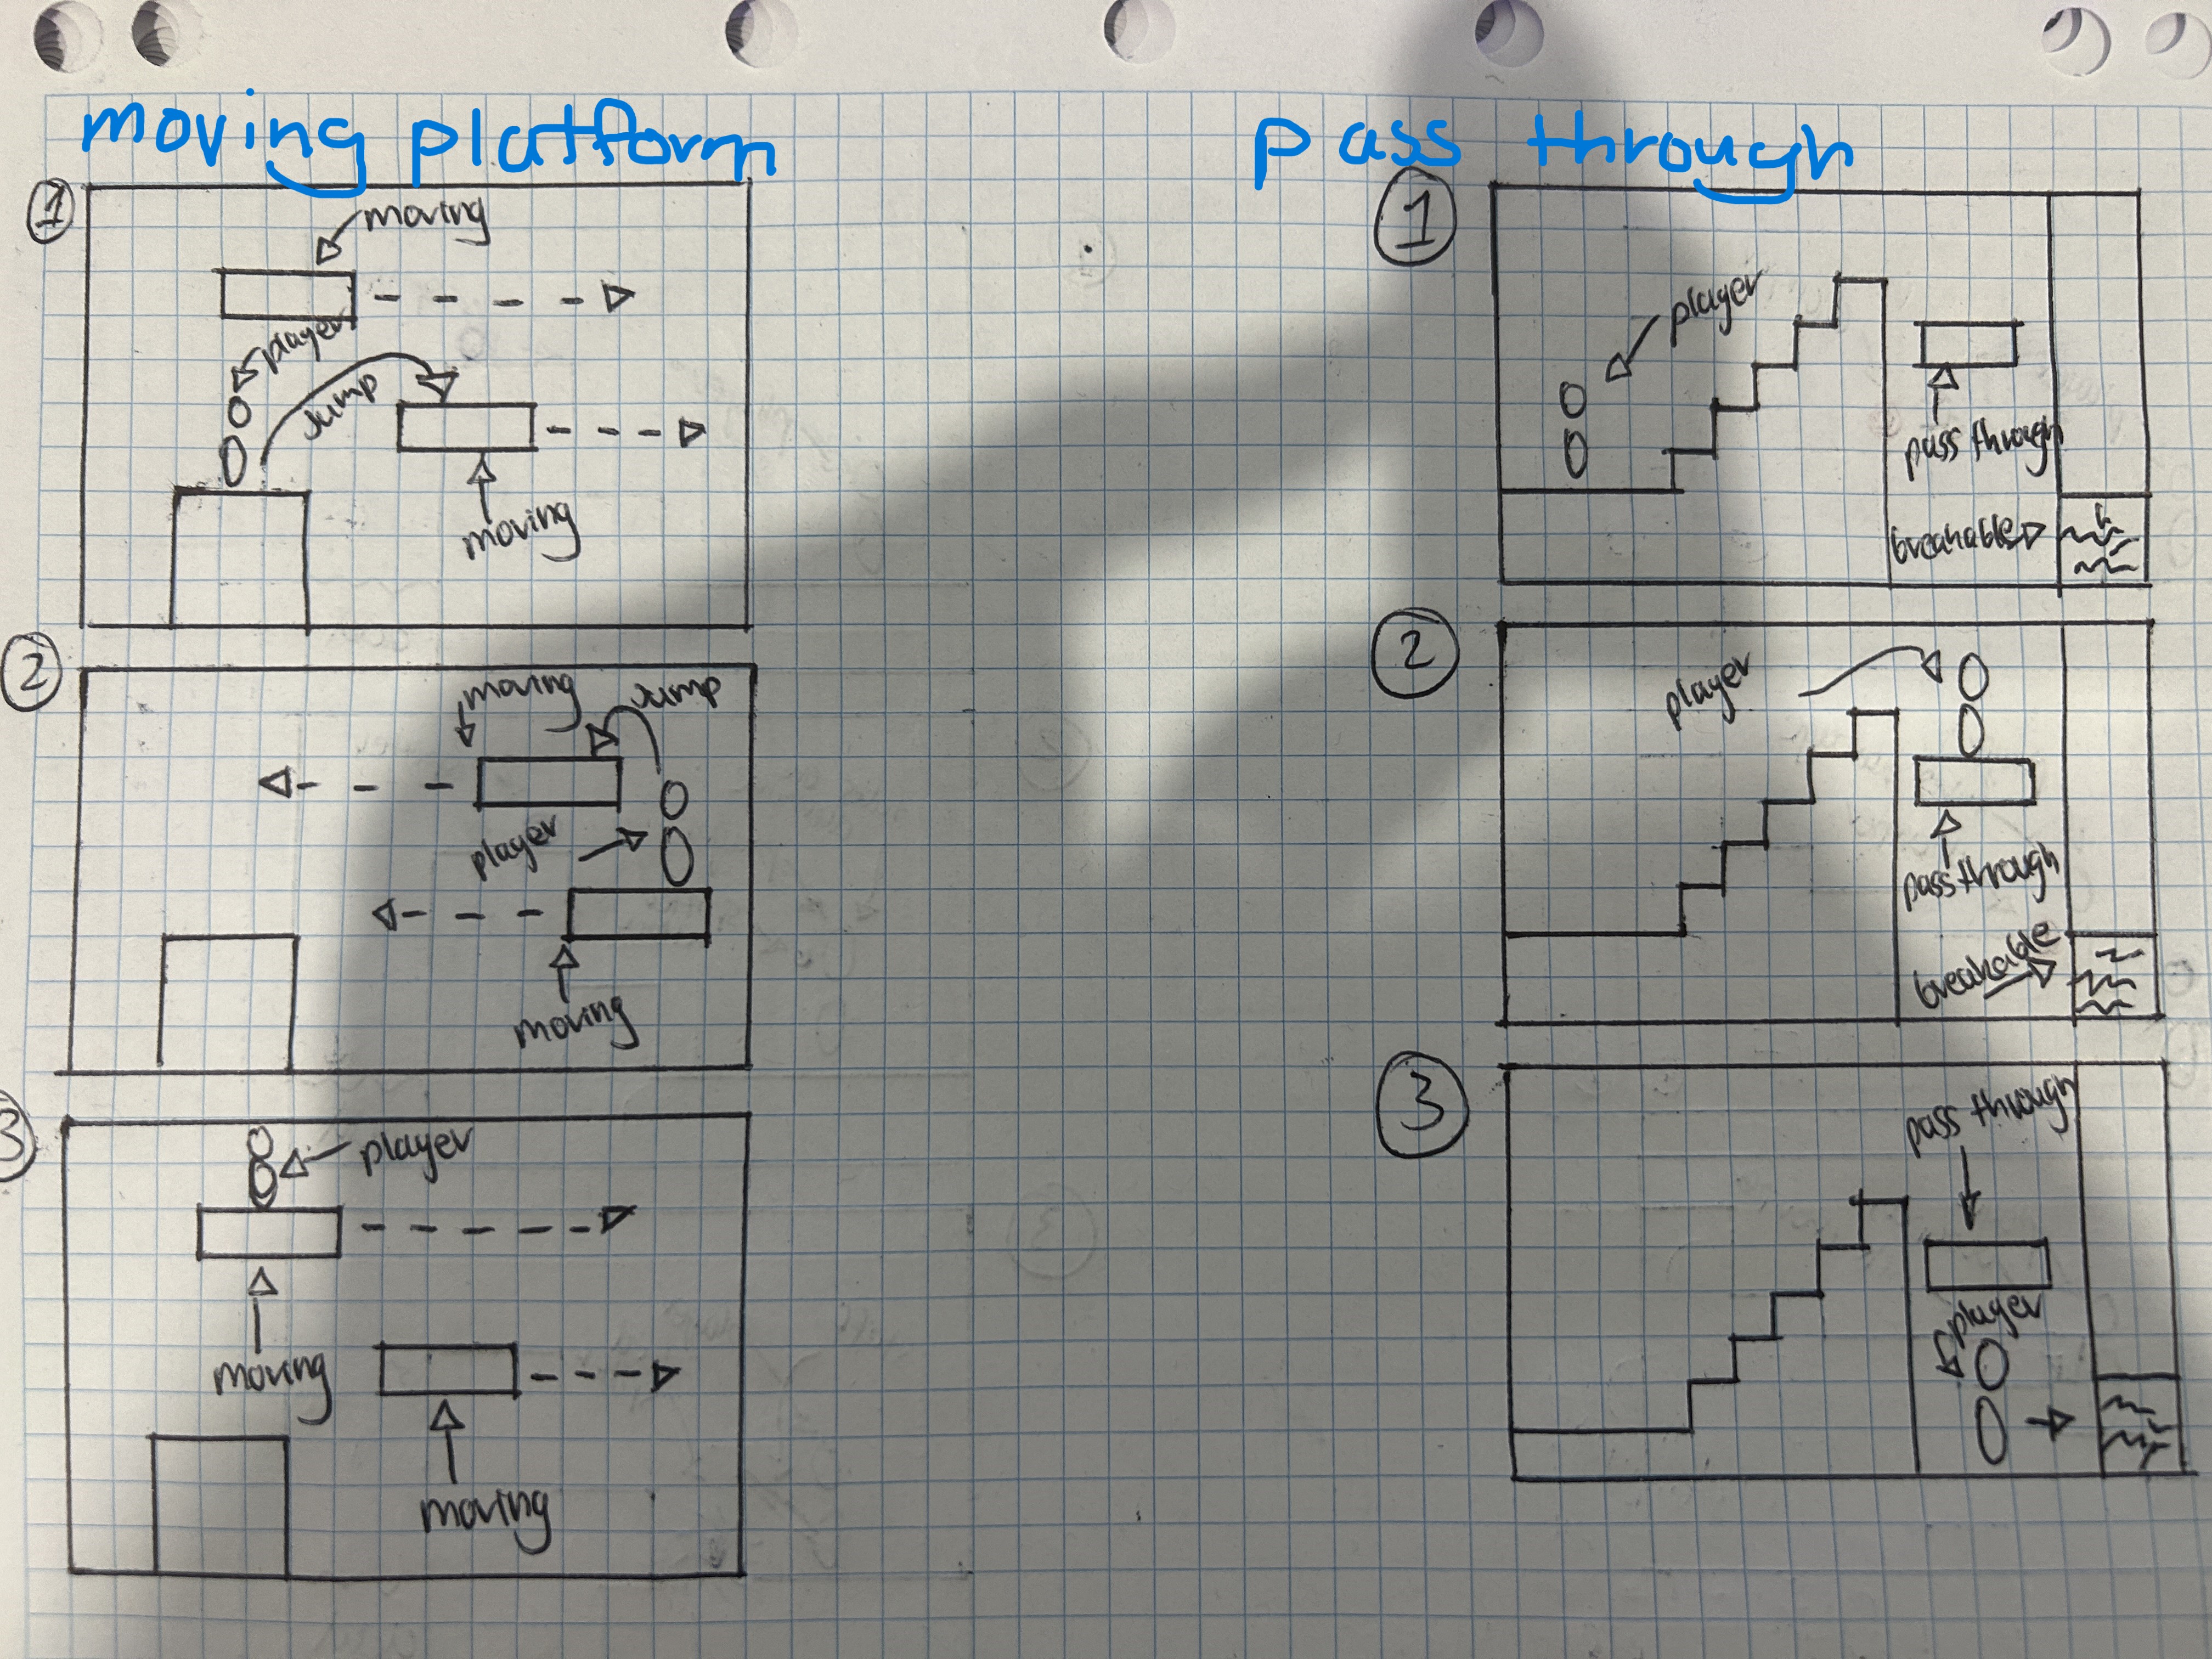 moving platform
1
moving
player
Jump
moving
2
moving
Jump
player
moving
3
player
moving
moving
pass through
1
player
pass through
breakable
2
player
pass through
breakable
3
pass through
player